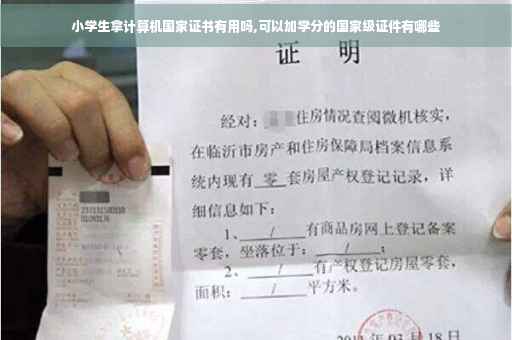 小学生拿计算机国家证书有用吗,可以加学分的国家级证件有哪些
证 明
经对: 住房情况查阅微机核实,
在临沂市房产和住房保障局档案信息系
统内现有 零 套房屋产权登记记录, 详
细信息如下:
1、 / 有商品房网上登记备案
零套, 坐落位于: / ;
2、 / 有产权登记房屋零套,
面积: / 平方米。
03月18日